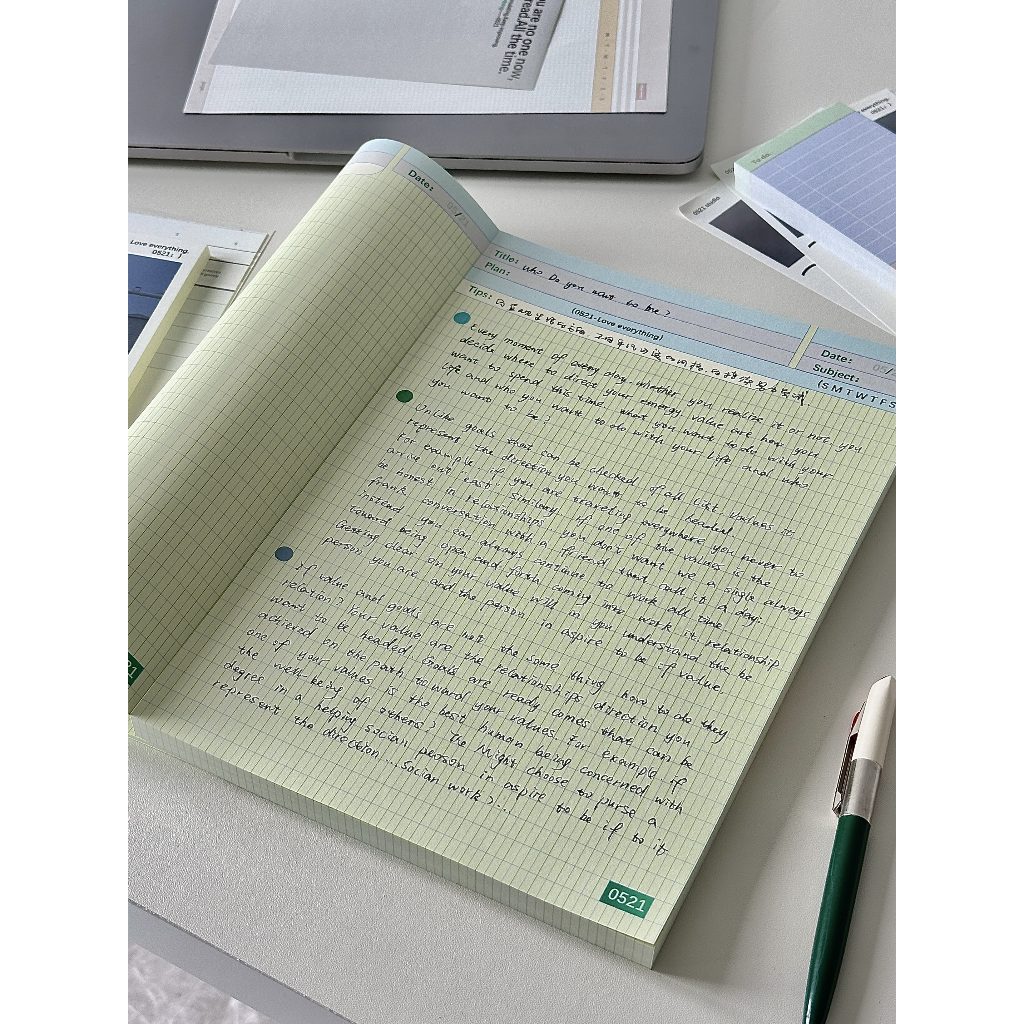 u are no one now,
read.All the time.
To do
0521 studio
Love everything.
0521:
Date:
05/
Title: Who Do you want to be?
Plan:
Tips:
(0521-Love everything)
Date: 05/
Subject:
(S M T W T F S
Every moment of every day. whether you realize it or not, you
decide where to direct your energy. value are how you
want to spend this time. what you want to do with your
life and who you want to do with your life and who
you want to be?
Unlike goals that can be checked of all list. values is
represent the direction you want to be headed.
For example, if you are traveling everywhere you never to
arrive out "east". Similary, if one of the values is the
be honest in relationships you don't want we a single always
frank conversation with a friend that call it a day:
instead, you can always continue to work all time
toward being open and forth coming into work it. relationship
Getting clear on your value will in you understand the be
person you are and the person in aspire to be if value.
If value and goals are not the some thing how to do they
relation? Your value are the relationships direction you
want to be headed. Goals are ready comes that can be
achieved on the path toward your values. For example if
one of your values is the best human being concerned with
the well-being of others? the Might choose to purse a
degree in a helping socian person in aspire to be if to it
represent the direction ... Socian work)...
0521
21